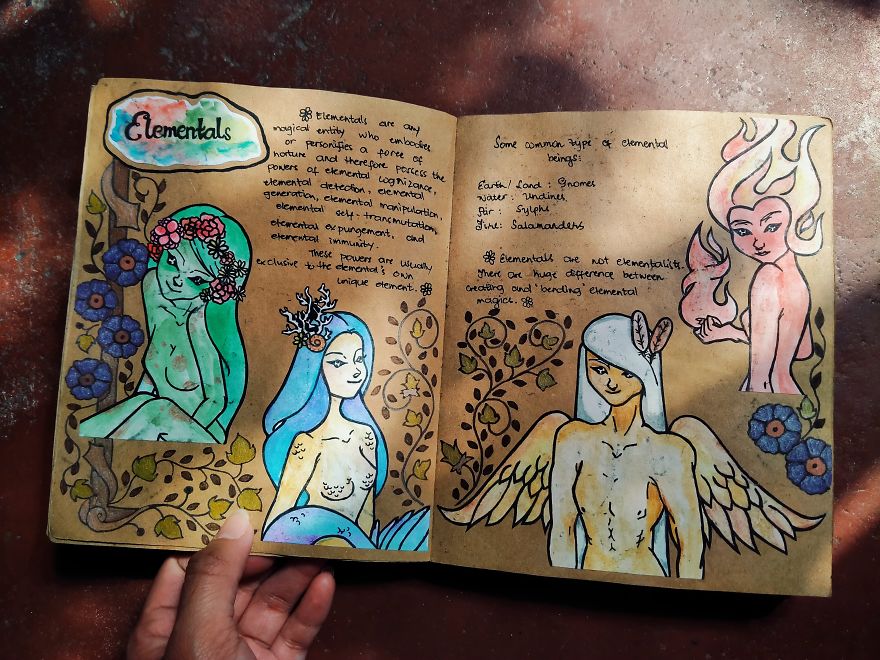 Elementals
Elementals are any
magical entity who embodies
or personifies a force of
nature and therefore possess the
powers of elemental cognizance,
elemental detection, elemental
generation, elemental manipulation,
elemental self-transmutation,
elemental expungement, and
elemental immunity.
These powers are usually
exclusive to the elemental's own
unique element.
Some common type of elemental
beings:
Earth/Land : Gnomes
Water : Undines
Air : Sylphs
Fire: Salamanders
Elementals are not elementalists.
There are huge difference between
creating and 'bending' elemental
magics.